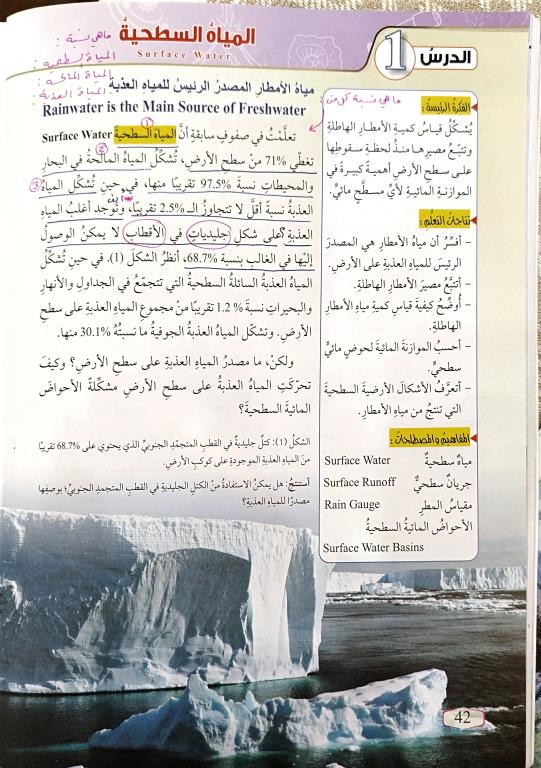 الدرسُ 1
المياهُ السطحيةُ
Surface Water
ما هي نسبة :
المياه السطحية :
المياه المالحة :
المياه العذبة :
مياهُ الأمطارِ المصدرُ الرئيسُ للمياهِ العذبةِ
Rainwater is the Main Source of Freshwater
ما هي نسبة كل من
تعلَّمْتُ في صفوفٍ سابقةٍ أنَّ المياهَ السطحيةَ Surface Water
تغطّي 71% منْ سطحِ الأرضِ، تُشكِّلُ المياهُ المالحةُ في البحارِ
والمحيطاتِ نسبةَ 97.5% تقريبًا منها، في حينِ تُشكِّلُ المياهُ
العذبةُ نسبةً أقلَّ لا تتجاوزُ الـ 2.5% تقريبًا، وتُوجَدُ أغلبُ المياهِ
العذبةِ على شكلِ جليدياتٍ في الأقطابِ لا يمكنُ الوصولُ
إليها في الغالبِ بنسبةِ 68.7%، أنظرُ الشكلَ (1). في حينِ تُشكِّلُ
المياهُ العذبةُ السائلةُ السطحيةُ التي تتجمّعُ في الجداولِ والأنهارِ
والبحيراتِ نسبةَ 1.2 % تقريبًا منْ مجموعِ المياهِ العذبةِ على سطحِ
الأرضِ. وتشكلُ المياهُ العذبةُ الجوفيةُ ما نسبتُهُ 30.1% منها.
ولكنْ، ما مصدرُ المياهِ العذبةِ على سطحِ الأرضِ؟ وكيفَ
تحركَتِ المياهُ العذبةُ على سطحِ الأرضِ مشكلةً الأحواضَ
المائيةَ السطحيةَ؟
الشكلُ (1): كتلٌ جليديةٌ في القطبِ المتجمّدِ الجنوبيِّ الذي يحتوي على 68.7% تقريبًا
منَ المياهِ العذبةِ الموجودةِ على كوكبِ الأرضِ.
أستنتجُ: هل يمكنُ الاستفادةُ منَ الكتلِ الجليديةِ في القطبِ المتجمدِ الجنوبيِّ؛ بوصفِها
مصدرًا للمياهِ العذبةِ؟
الفكرةُ الرئيسةُ :
يُشكِّلُ قياسُ كميةِ الأمطارِ الهاطلةِ
وتتبّعُ مصيرِها منذُ لحظةِ سقوطِها
على سطحِ الأرضِ أهميةً كبيرةً في
الموازنةِ المائيةِ لأيِّ مسطحٍ مائيٍّ.
نتاجاتُ التعلُّمِ :
– أفسِّرُ أن مياهَ الأمطارِ هي المصدرُ
الرئيسُ للمياهِ العذبةِ على الأرضِ.
– أتتبَّعُ مصيرَ الأمطارِ الهاطلةِ.
– أوضِّحُ كيفيةَ قياسِ كميةِ مياهِ الأمطارِ
الهاطلةِ.
– أحسبُ الموازنةَ المائيةَ لحوضٍ مائيٍّ
سطحيٍّ.
– أتعرَّفُ الأشكالَ الأرضيةَ السطحيةَ
التي تنتجُ من مياهِ الأمطارِ.
المفاهيمُ والمصطلحاتُ :
مياهٌ سطحيةٌ Surface Water
جريانٌ سطحيٌّ Surface Runoff
مقياسُ المطرِ Rain Gauge
الأحواضُ المائيةُ السطحيةُ
Surface Water Basins
42